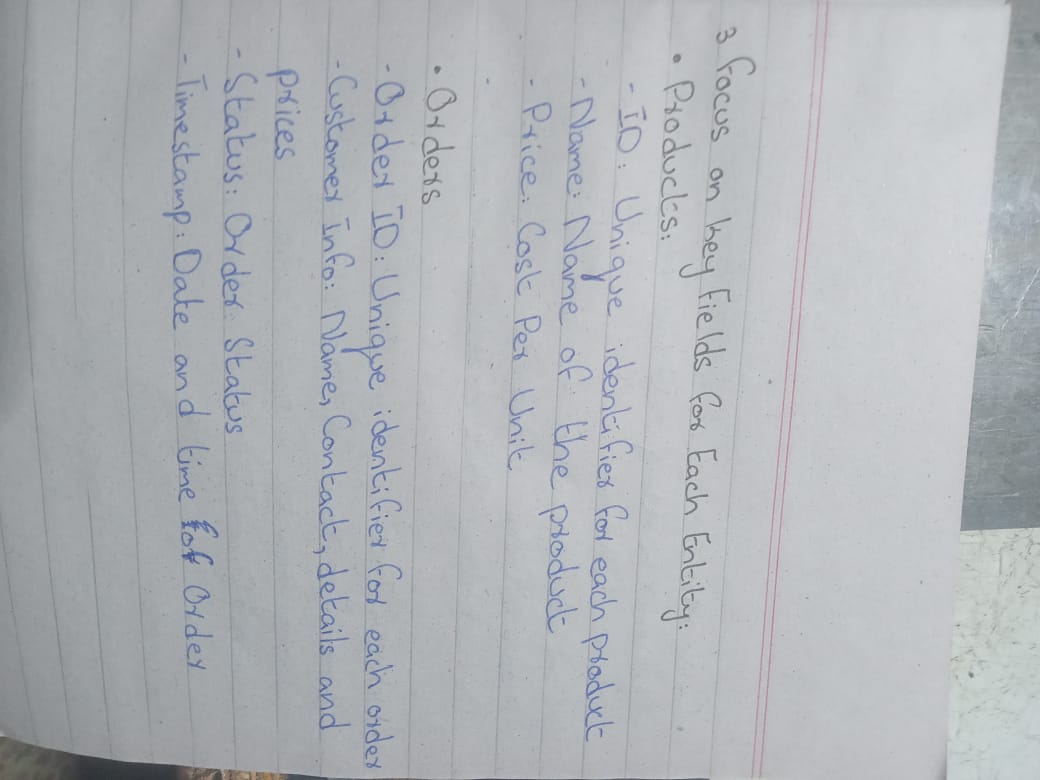 3 Focus on key Fields for Each Entity:
• Products:
- ID: Unique identifier for each product
- Name: Name of the product
- Price: Cost Per Unit
-
• Orders
- Order ID: Unique identifier for each order
- Customer Info: Name, Contact, details and
prices
- Status: Order Status
- Timestamp: Date and time of Order